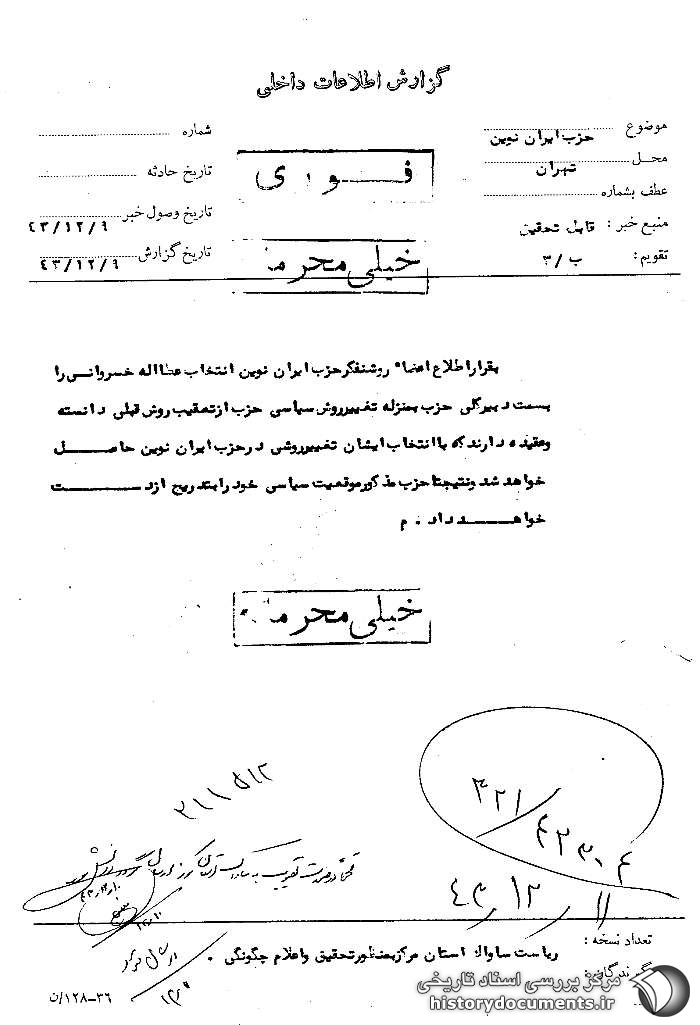 گزارش اطلاعات داخلی
موضوع حزب ایران نوین
محل تهران
عطف بشماره
منبع خبر : قابل تحقیق
تقویم : ب / ۳
فــوری
خیلی محرمانه
شماره
تاریخ حادثه
تاریخ وصول خبر ٤٣/١٢/٩
تاریخ گزارش ٤٣/١٢/٩
بقرار اطلاع اعضاء روشنفکر حزب ایران نوین انتخاب عطااله خسروانی را
بسمت دبیرکلی حزب بمنزله تغییر روش سیاسی حزب از تعقیب روش قبلی دانسته
وعقیده دارند که با انتخاب ایشان تغییر روشی در حزب ایران نوین حاصل
خواهد شد ونتیجتا حزب مذکور موقعیت سیاسی خود را بتدریج از دست
خواهد داد . م
خیلی محرمانه
۳۱۱۵۱۲
۳۲۱
٤٣/١٢/١١
تعداد نسخه :
گیرندگان :
ریاست ساواک استان مرکز بمنظور تحقیق واعلام چگونگی .
۳۶-۱۲۸/ن
مرکز بررسی اسناد تاریخی
historydocuments.ir